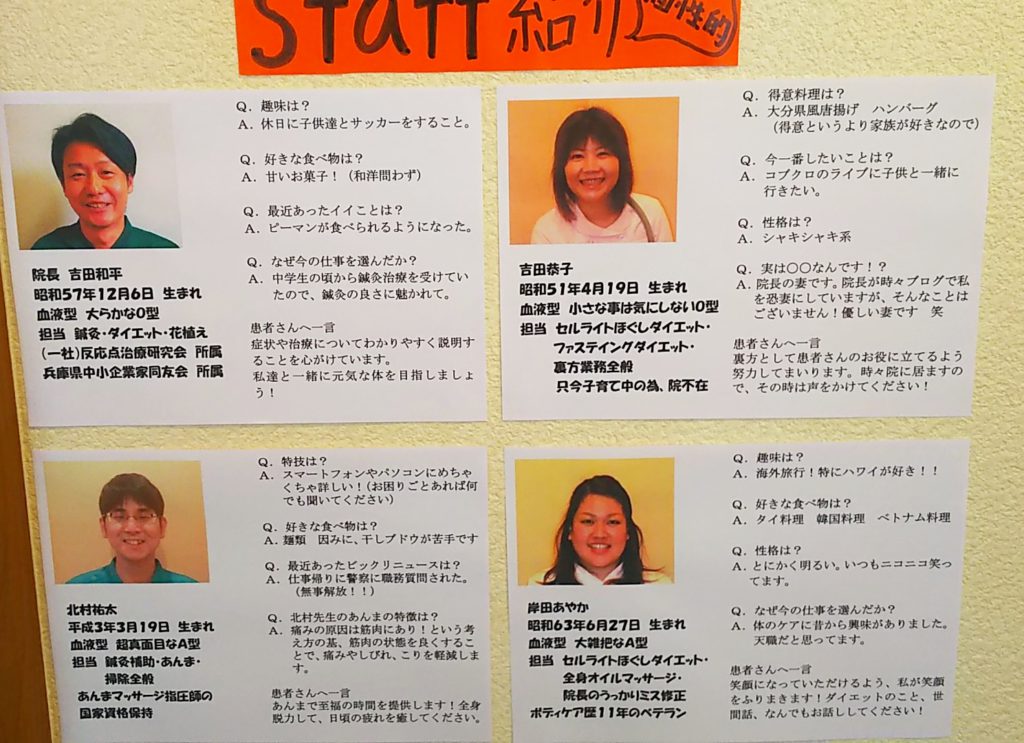 Staff紹介
個性的
Q. 趣味は？
A. 休日に子供達とサッカーをすること。
Q. 好きな食べ物は？
A. 甘いお菓子！（和洋問わず）
Q. 最近あったイイことは？
A. ピーマンが食べられるようになった。
Q. なぜ今の仕事を選んだか？
A. 中学生の頃から鍼灸治療を受けてい
たので、鍼灸の良さに魅かれて。
患者さんへ一言
症状や治療についてわかりやすく説明す
ることを心がけています。
私達と一緒に元気な体を目指しましょ
う！
院長 吉田和平
昭和57年12月6日 生まれ
血液型 大らかなO型
担当 鍼灸・ダイエット・花植え
（一社）反応点治療研究会 所属
兵庫県中小企業家同友会 所属
Q. 得意料理は？
A. 大分県風唐揚げ ハンバーグ
（得意というより家族が好きなので）
Q. 今一番したいことは？
A. コブクロのライブに子供と一緒に
行きたい。
Q. 性格は？
A. シャキシャキ系
Q. 実は〇〇なんです！？
A. 院長の妻です。院長が時々ブログで私
を恐妻にしていますが、そんなことは
ございません！優しい妻です 笑
患者さんへ一言
裏方として患者さんのお役に立てるよう
努力してまいります。時々院に居ますの
で、その時は声をかけてください！
吉田恭子
昭和51年4月19日 生まれ
血液型 小さな事は気にしないO型
担当 セルライトほぐしダイエット・
ファステイングダイエット・
裏方業務全般
只今子育て中の為、院不在
Q. 特技は？
A. スマートフォンやパソコンにめちゃ
くちゃ詳しい！（お困りごとあれば何
でも聞いてください）
Q. 好きな食べ物は？
A. 麺類 因みに、干しブドウが苦手です
Q. 最近あったビックリニュースは？
A. 仕事帰りに警察に職務質問された。
（無事解放！！）
Q. 北村先生のあんまの特徴は？
A. 痛みの原因は筋肉にあり！という考
え方の基、筋肉の状態を良くするこ
とで、痛みやしびれ、こりを軽減しま
す。
患者さんへ一言
あんまで至福の時間を提供します！全身
脱力して、日頃の疲れを癒してください。
北村祐太
平成3年3月19日 生まれ
血液型 超真面目なA型
担当 鍼灸補助・あんま・
掃除全般
あんまマッサージ指圧師の
国家資格保持
Q. 趣味は？
A. 海外旅行！特にハワイが好き！！
Q. 好きな食べ物は？
A. タイ料理 韓国料理 ベトナム料理
Q. 性格は？
A. とにかく明るい。いつもニコニコ笑っ
てます。
Q. なぜ今の仕事を選んだか？
A. 体のケアに昔から興味がありました。
天職だと思ってます。
患者さんへ一言
笑顔になっていただけるよう、私が笑顔
をふりまきます！ダイエットのこと、世
間話、なんでもお話ししてください！
岸田あやか
昭和63年6月27日 生まれ
血液型 大雑把なA型
担当 セルライトほぐしダイエット・
全身オイルマッサージ・
院長のうっかりミス修正
ボディケア歴11年のベテラン